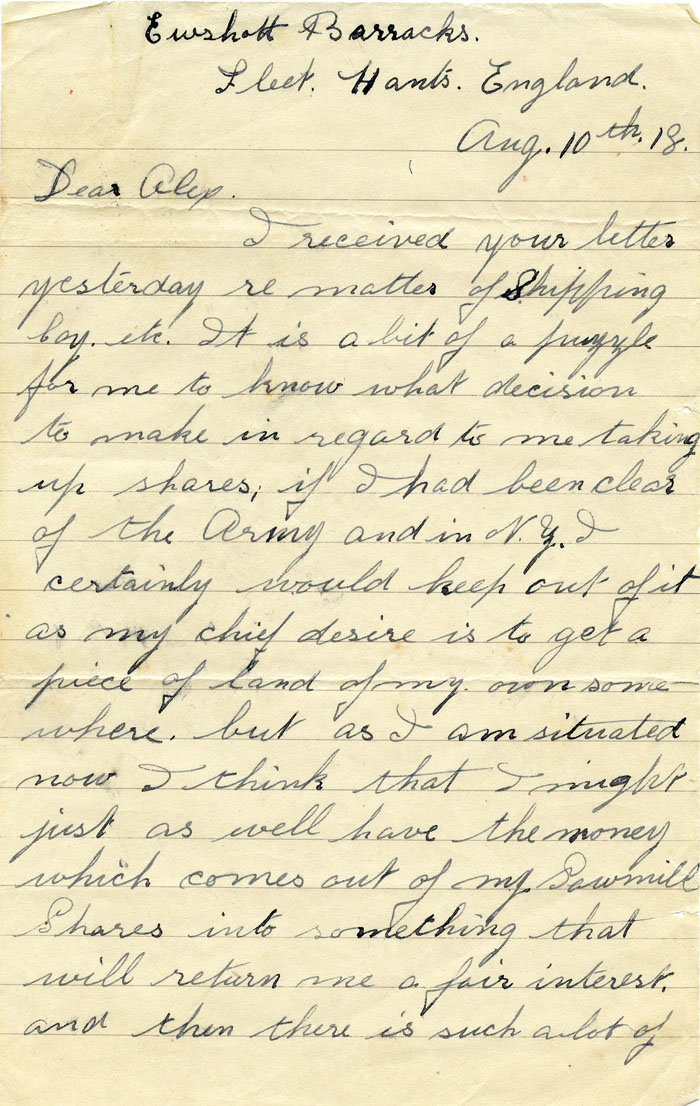 Ewshott Barracks.
Fleet. Hants. England.
Aug. 10th. 18.
Dear Alex.
I received your letter
yesterday re matter of Shipping
Coy. etc. It is a bit of a puzzle
for me to know what decision
to make in regard to me taking
up shares; if I had been clear
of the Army and in N.Z. I
certainly would keep out of it
as my chief desire is to get a
piece of land of my own some-
where. but as I am situated
now I think that I might
just as well have the money
which comes out of my Sawmill
Shares into something that
will return me a fair interest.
and then there is such a lot of